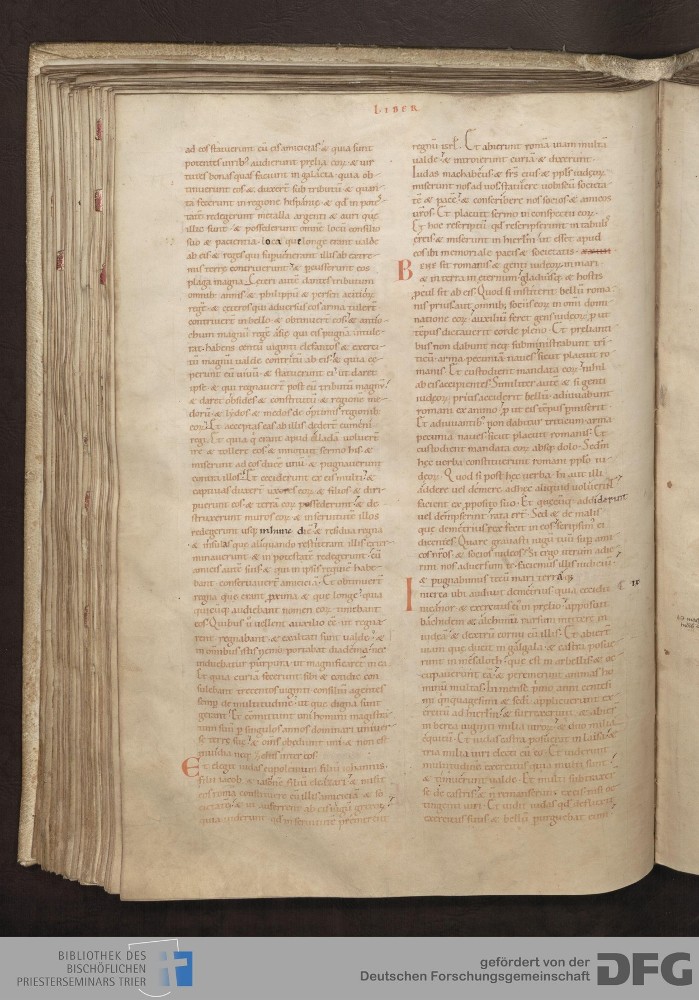 LIBER
ad eos statuerunt cū eis amicitiā & quia sunt
potentes uirib; audierunt prelia eoꝝ & uir
tutes bonas quas faciunt in galacia quia ob
tinuerunt eos & duxert sub tributū & quan
ta fecerunt in regione hispanię & qd in potes
tatē redegerunt metalla argenti & auri quę
illic sunt & possederunt omnē locū consilio
suo & patientia loca quę longe erant ualde
ab eis & reges qui supuenerant illis ab extre
mis terrę contriuerunt & pcusserunt eos
plaga magna Ceteri autē dantes tributum
omnib; annis & philippū & persen
regē & ceteros qui aduersus eos arma tulert
contriuert in bello & obtinuert eos & antio
chum magnū regē asię qui eis pugnā intule
rat habens centū uiginti elefantos & exerci
tū magnū ualde contritū ab eis & quia ce
perunt eū uiuū & statuerunt ei ut daret
ipse & qui regnauert post eū tributū magnū
& daret obsides & constitutū & regionē me
dorū & lydos & medos de optimis regionib;
eoꝝ Et acceptas eas ab illis dedert eumeni
regi Et quia q erant apud ellada uoluert
ire & tollere eos & innotuit sermo his &
miserunt ad eos ducē unū & pugnauerunt
contra illos Et ceciderunt ex eis multi &
captiuas duxert uxores eoꝝ & filios & diri
puerunt eos & terrā eoꝝ possederunt & de
struxerunt muros eoꝝ & in seruitutē illos
redegerunt usq; in hunc diē & residua regna
& insulas quę aliquando restiterant illis exter
minauerunt & in potestatē redegerunt cū
amicis autē suis & qui in ipsis requiē habe
bant conseruauert amicitiā Et obtinuert
regna quę erant pxima & quę longe quia
quicūq; audiebant nomen eoꝝ timebant
eos Quib; uo uellent auxilio eē ut regna
rent regnabant & exaltati sunt ualde &
in omnib; istis nemo portabat diadema nec
induebatur purpura ut magnificaret in ea
Et quia curiā fecerunt sibi & cotidie con
sulebant trecentos uiginti consiliū agentes
semp de multitudine ut quę digna sunt
gerant Et comittunt uni homini magistra
tum suū p singulos annos dominari uniuer
sę terrę suę & omis obediunt uni & non est
inuidia neq; zelus inter eos
Et elegit iudas eupolemum filiū iohannis
filii iacob & iasonē filiū eleazari & misit
eos romā constituere cū illis amicitiā & so
cietatē & ut auferrent ab eis iugū grecoꝝ
quia uiderunt qd in seruitutē premerent
regnū isrl Et abierunt romā uiam multā
ualde & introierunt curiā & dixerunt
Iudas machabeus & frs eius & ppls iudeoꝝ
miserunt nos ad uos statuere uobiscū societa
tē & pacē & conscribere nos socios & amicos
uros Et placuit sermo in conspectu eoꝝ
Et hoc rescriptū qd rescripserunt in tabulis
ereis & miserunt in hierlm ut esset apud
eos ibi memoriale pacis & societatis
Bene sit romanis & genti iudeoꝝ in mari
& in terra in eternum gladiusq; & hostis
pcul sit ab eis Quod si institerit bellū roma
nis prius aut omnib; sociis eoꝝ in omi domi
natione eoꝝ auxiliū feret gens iudeoꝝ p ut
tēpus dictauerit corde pleno Et prelianti
bus non dabunt neq; subministrabunt tri
ticū arma pecuniā naues sicut placuit ro
manis Et custodient mandata eoꝝ nihil
ab eis accipientes Similiter autē & si genti
iudeoꝝ prius acciderit bellū adiuuabunt
romani ex animo p ut eis tēpus pmiserit
Et adiuuantib; non dabitur triticum arma
pecunia naues sicut placuit romanis Et
custodient mandata eoꝝ absq; dolo Sedm
hęc uerba constituerunt romani pplo iu
deoꝝ Quod si post hęc uerba hi aut illi
addere uel demere ad hęc aliquid uoluerint
facient ex pposito suo Et quęcūq; addiderint
uel dempserint rata ert Sed & de malis
quę demetrius rex fecit in eos scripsim ei
dicentes Quare grauasti iugū tuū sup ami
cos nros & socios iudeos Si ergo iterum adie
rint nos aduersum te faciemus illis iudiciū
& pugnabimus tecū mari terraq;
Interea ubi audiuit demetrius quia cecidit
nichanor & exercitus ei in prelio apposuit
bachidem & alchimū rursum mittere in
iudeā & dextrū cornu cū illis Et abiert
uiam que ducit in galgala & castra posue
runt in mesaloth que est in arbellis & oc
cupauerunt eā & peremerunt animas ho
minū multas In mense primo anni centesi
mi quinquagesimi & scdi applicuerunt ex
ercitū ad hierlm & surrexerunt & abiert
in berea uiginti milia uiroꝝ & duo milia
equitū Et iudas castra posuerat in laisa &
tria milia uiri electi cū eo Et uiderunt
multitudinē exercitus quia multi sunt
& timuerunt ualde Et multi subtraxert
se de castris & n remanserunt ex eis nisi oc
tingenti uiri Et uidit iudas qd defluxit
exercitus suus & bellū perurguebat eum
ıx
BIBLIOTHEK DES
BISCHÖFLICHEN
PRIESTERSEMINARS TRIER
gefördert von der
Deutschen Forschungsgemeinschaft
DFG